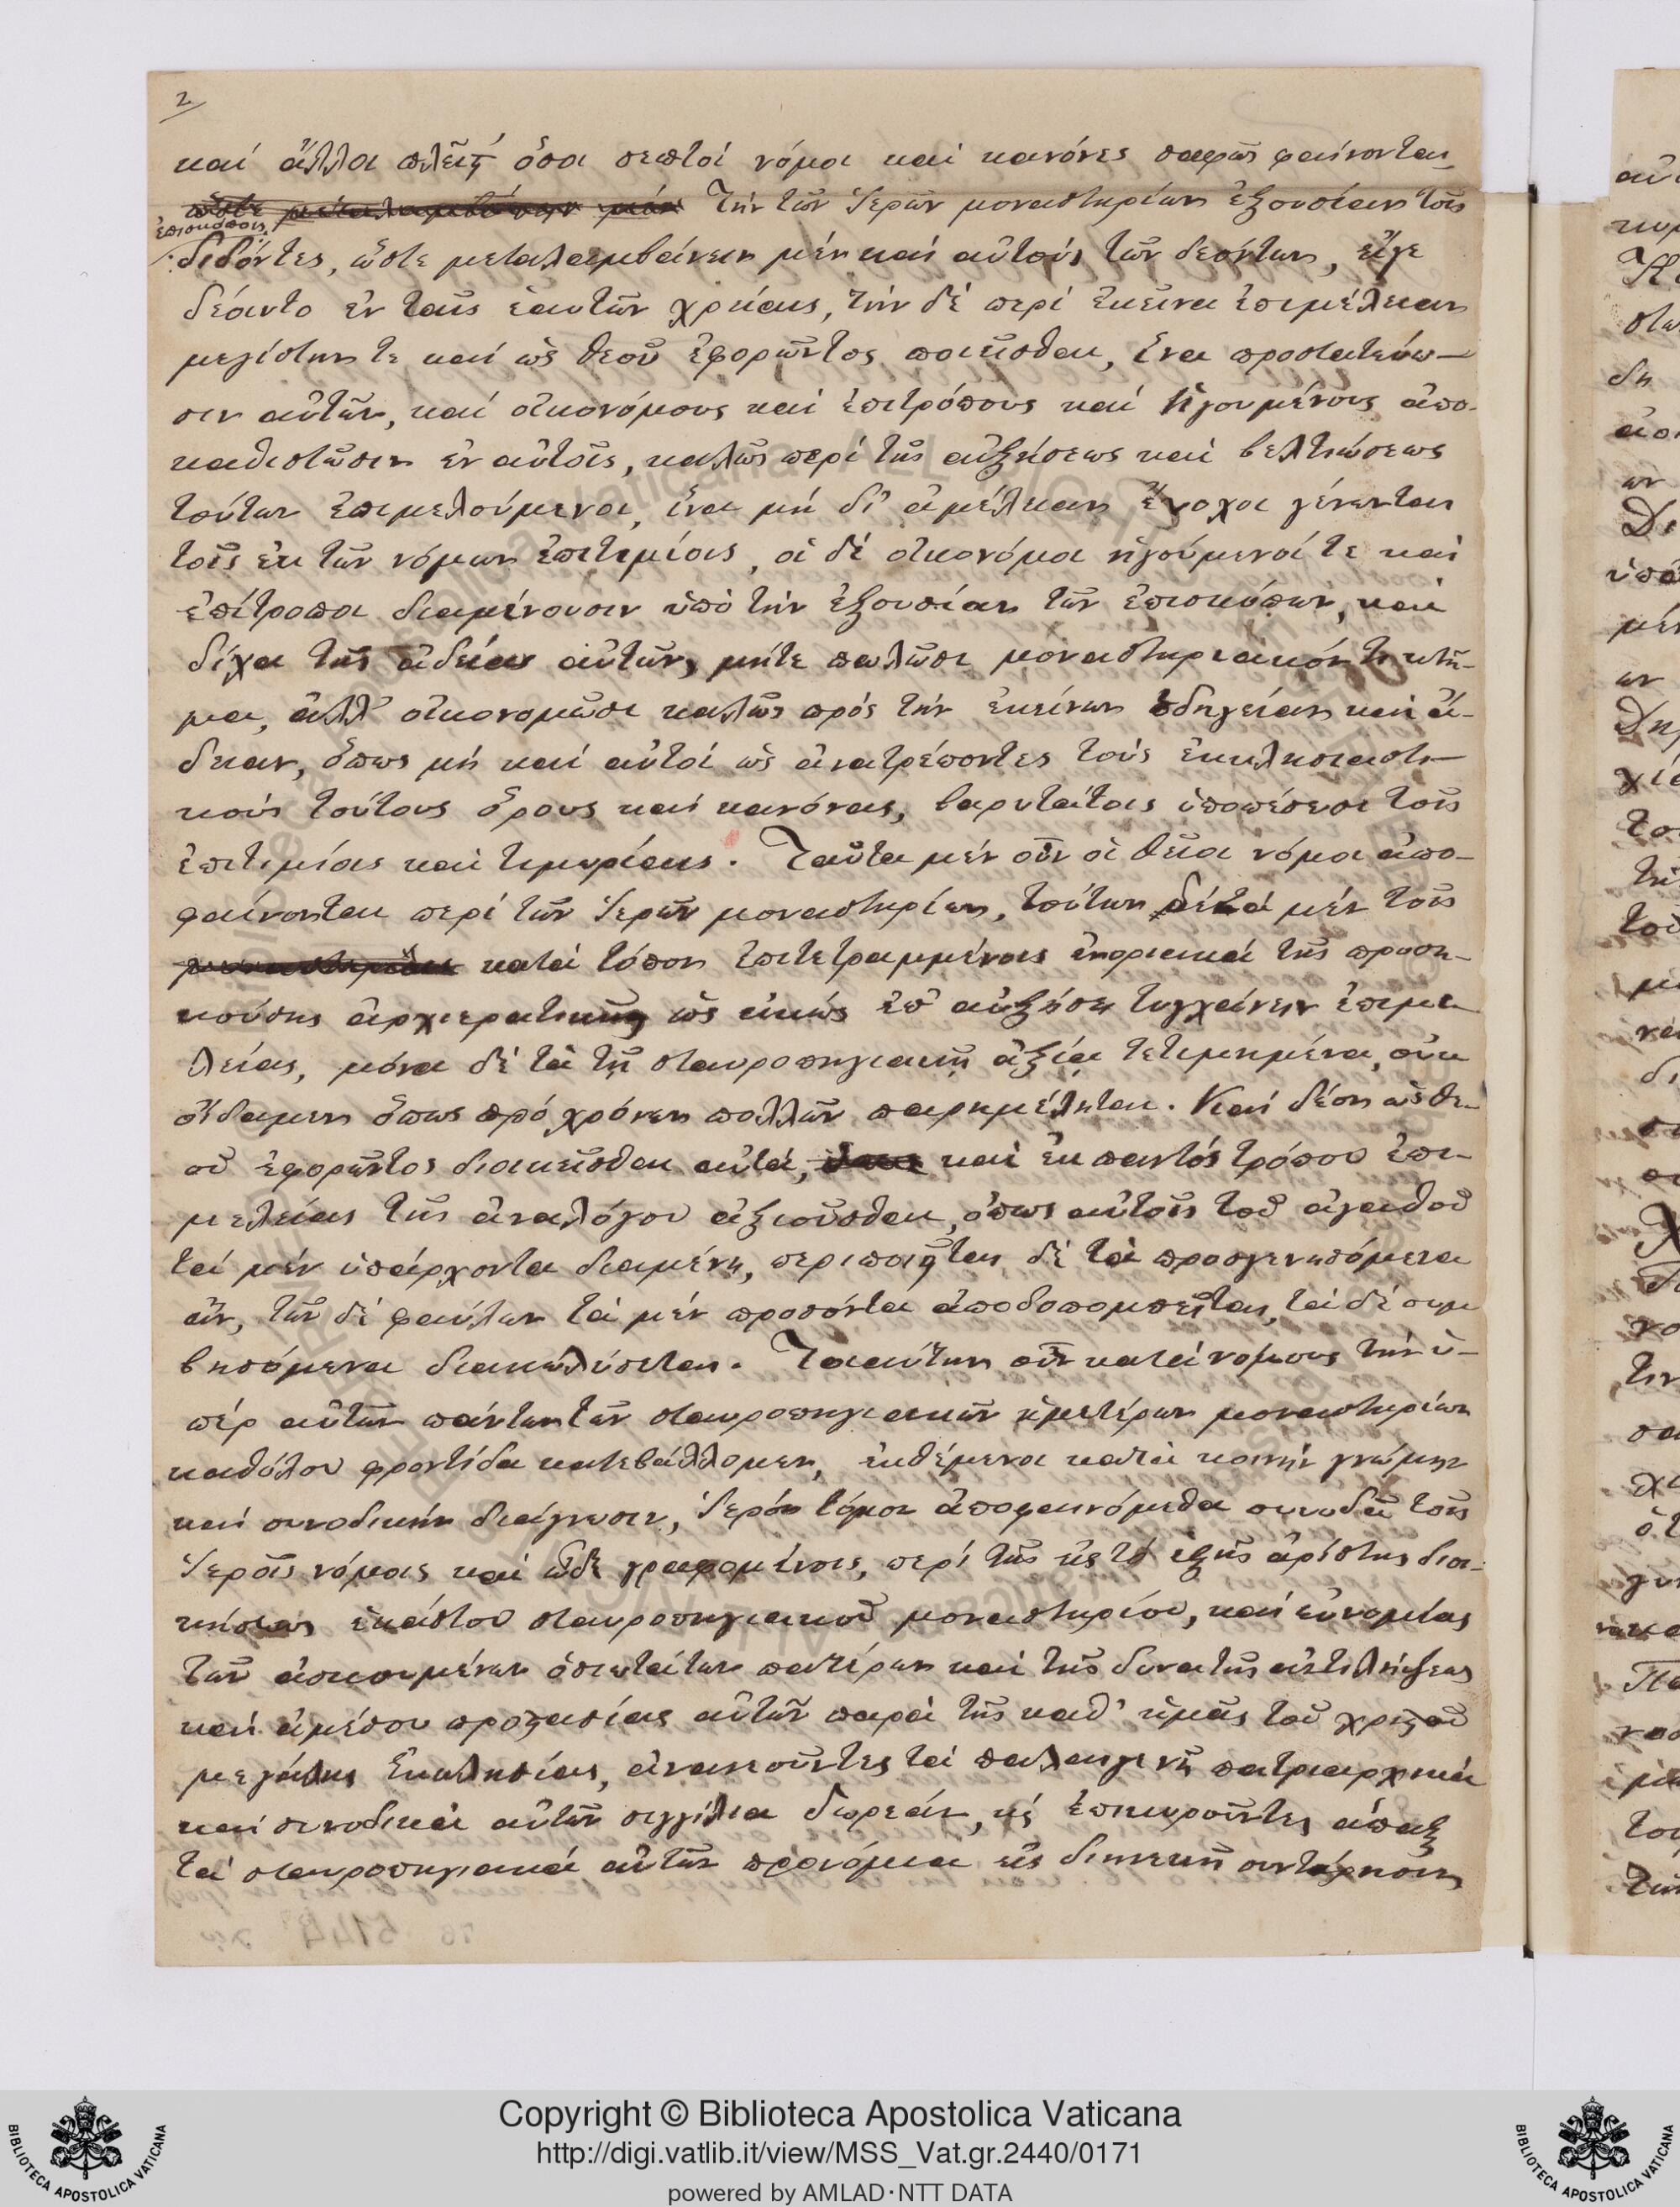 2
καὶ ἄλλα πλεῖστ' ὅσα σεπτοὶ νόμοι καὶ κανόνες σαφῶς φαίνονται
ὥστε μεταλαμβάνειν μὲν τὴν τῶν ἱερῶν μοναστηρίων ἐξουσίαν τοῖς
ἐπισκόποις
διδόντες, ὥστε μεταλαμβάνειν μὲν καὶ αὐτοὺς τῶν δεόντων, εἴγε
δέοιντο ἐν ταῖς ἑαυτῶν χρείαις, τὴν δὲ περὶ ἐκεῖνα ἐπιμέλειαν
μεγίστην τε καὶ ὡς θεοῦ ἐφορῶντος ποιεῖσθαι, ἵνα προστατεύω-
σιν αὐτῶν, καὶ οἰκονόμους καὶ ἐπιτρόπους καὶ ἡγουμένους ἀπο-
καθιστῶσιν ἐν αὐτοῖς, καλῶς περὶ τῆς αὐξήσεως καὶ βελτιώσεως
τούτων ἐπιμελούμενοι, ἵνα μὴ δι' ἀμέλειαν ἔνοχοι γένωνται
τοῖς ἐκ τῶν νόμων ἐπιτιμίοις, οἱ δὲ οἰκονόμοι ἡγούμενοί τε καὶ
ἐπίτροποι διαμένουσιν ὑπὸ τὴν ἐξουσίαν τῶν ἐπισκόπων, καὶ
δίχα τῆς ἀδείας αὐτῶν, μήτε πωλῶσι μοναστηριακόν τι κτῆ-
μα, ἀλλ' οἰκονομῶσι καλῶς πρὸς τὴν ἐκείνων ὁδηγείαν καὶ ἄ-
δειαν, ὅπως μὴ καὶ αὐτοὶ ὡς ἀνατρέποντες τοὺς ἐκκλησιαστι-
κοὺς τούτους ὅρους καὶ κανόνας, βαρυτάτοις ὑποπέσωσι τοῖς
ἐπιτιμίοις καὶ τιμωρίαις. Ταῦτα μὲν οὖν οἱ θεῖοι νόμοι ἀπο-
φαίνονται περὶ τῶν ἱερῶν μοναστηρίων, τούτων δὲ τὰ μὲν τοῖς
κατὰ τόπον ἐπιτετραμμένοις ἐνοριακὰ τῆς προση-
κούσης ἀρχιερατικῆς ὡς εἰκὸς ἐπ' αὐξήσει τυγχάνειν ἐπιμε-
λείας, μόνα δὲ τὰ τῇ σταυροπηγιακῇ ἀξίᾳ τετιμημένα, οὐκ
οἴδαμεν ὅπως πρὸ χρόνων πολλῶν παρημέληται. Καὶ δέον ὡς θε-
οῦ ἐφορῶντος διακεῖσθαι αὐτά, καὶ ἐκ παντὸς τρόπου ἐπι-
μελείας τῆς ἀναλόγου ἀξιοῦσθαι, ὅπως αὐτοῖς τοῦ ἀγαθοῦ
τὰ μὲν ὑπάρχοντα διαμένῃ, περιποιῆται δὲ τὰ προσγενησόμενα
ἄν, τῶν δὲ φαύλων τὰ μὲν προσόντα ἀποδοπομπεῖται, τὰ δὲ συμ
βησόμενα διακωλύεται. Τοιαύτην οὖν κατὰ νόμους τὴν ὑ-
πὲρ αὐτῶν πάντων τῶν σταυροπηγιακῶν ἡμετέρων μοναστηρίων
καθόλου φροντίδα κατεβάλλομεν, ἐκθέμενοι κατὰ κοινὴν γνώμην
καὶ συνοδικὴν διάγνωσιν, ἱερὸν τόμον ἀποφαινόμεθα συνῳδὰ τοῖς
ἱεροῖς νόμοις καὶ ὧδε γραφομένοις, περὶ τῆς εἰς τὸ ἑξῆς ἀρίστης διοι-
κήσεως ἑκάστου σταυροπηγιακοῦ μοναστηρίου, καὶ εὐνομίας
τῶν ἀσκουμένων ὁσιωτάτων πατέρων καὶ τῆς δυνατῆς ἀντιλήψεως
καὶ ἀμέσου προστασίας αὐτῶν παρὰ τῆς καθ' ἡμᾶς τοῦ χριστοῦ
μεγάλης Ἐκκλησίας, ἀνανεοῦντες τὰ παλαιγενῆ πατριαρχικὰ
καὶ συνοδικὰ αὐτῶν σιγγίλια δωρεάν, καὶ ἐπικυροῦντες ἅπαξ
τὰ σταυροπηγιακὰ αὐτῶν προνόμια εἰς διηνεκῆ συντήρησιν
BIBLIOTECA APOSTOLICA VATICANA
Copyright © Biblioteca Apostolica Vaticana
http://digi.vatlib.it/view/MSS_Vat.gr.2440/0171
powered by AMLAD·NTT DATA
BIBLIOTECA APOSTOLICA VATICANA